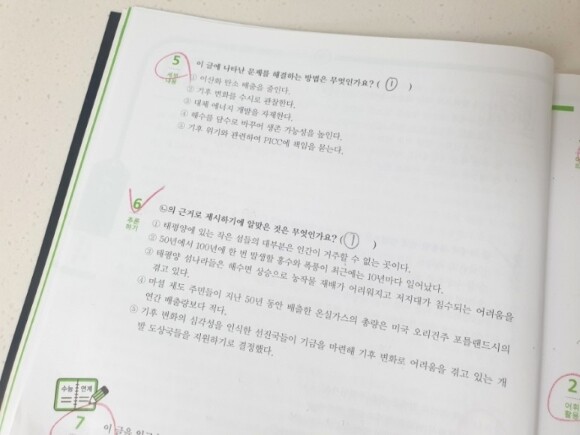 5 이 글에 나타난 문제를 해결하는 방법은 무엇인가요? ( ① )
① 이산화 탄소 배출을 줄인다.
② 기후 변화를 수시로 관찰한다.
③ 대체 에너지 개발을 자제한다.
④ 해수를 담수로 바꾸어 생존 가능성을 높인다.
⑤ 기후 위기와 관련하여 PICC에 책임을 묻는다.
6 추론하기
㉡의 근거로 제시하기에 알맞은 것은 무엇인가요? ( ① )
① 태평양에 있는 작은 섬들의 대부분은 인간이 거주할 수 없는 곳이다.
② 50년에서 100년에 한 번 발생할 홍수와 폭풍이 최근에는 10년마다 일어났다.
③ 태평양 섬나라들은 해수면 상승으로 농작물 재배가 어려워지고 저지대가 침수되는 어려움을
겪고 있다.
④ 마셜 제도 주민들이 지난 50년 동안 배출한 온실가스의 총량은 미국 오리건주 포틀랜드시의
연간 배출량보다 적다.
⑤ 기후 변화의 심각성을 인식한 선진국들이 기금을 마련해 기후 변화로 어려움을 겪고 있는 개
발 도상국들을 지원하기로 결정했다.
수능 연계
7 이 글을
2
어휘
활용